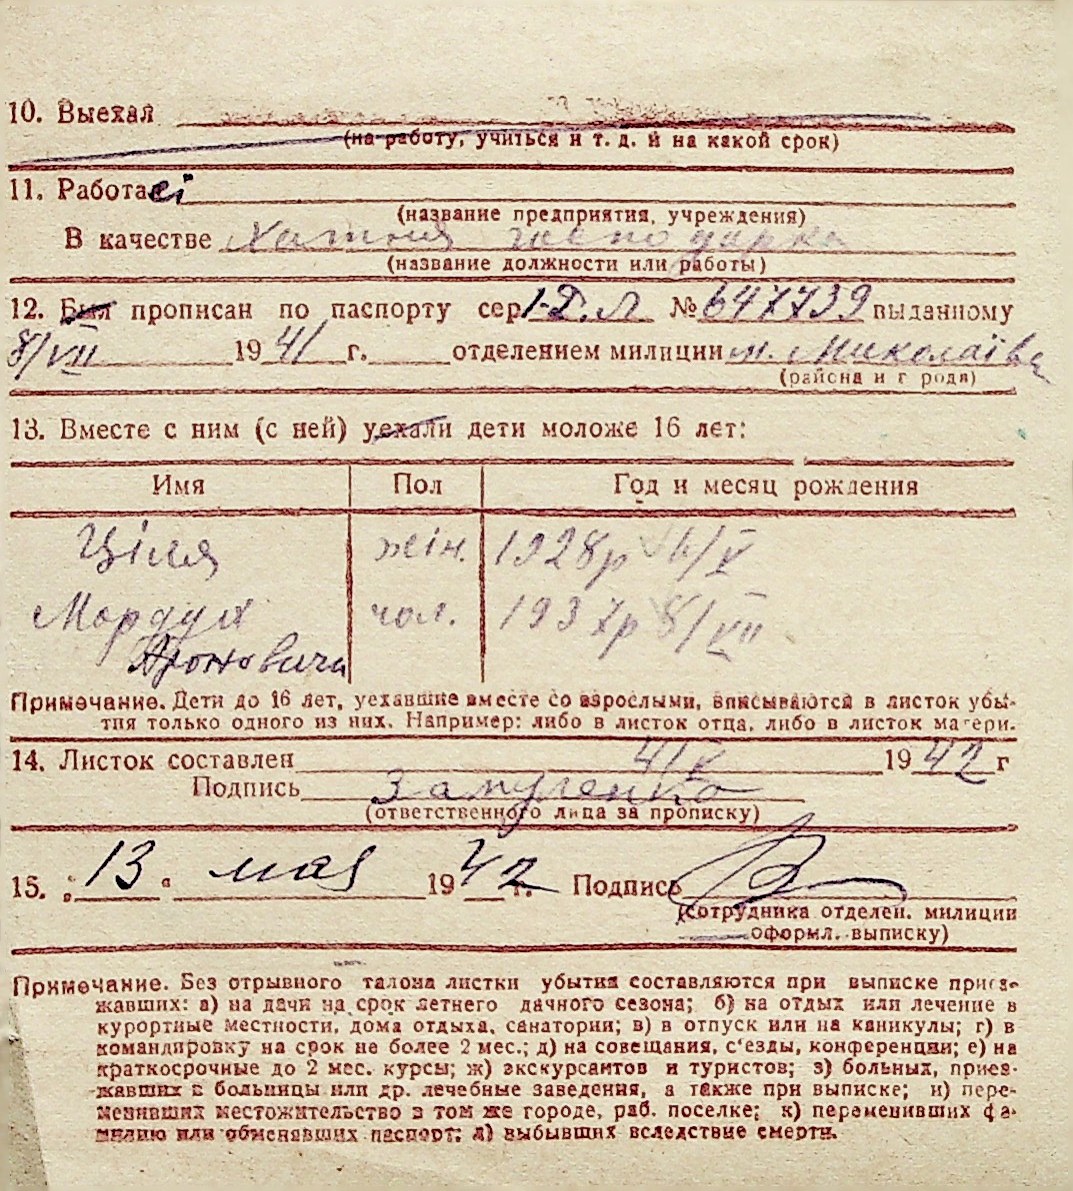 10. Выехал
(на работу, учиться и т. д. и на какой срок)
11. Работаеі
(название предприятия, учреждения)
В качестве Хатня господарка
(название должности или работы)
12. Был прописан по паспорту сер. І-Д.Л № 647739 выданному
8/VII 1941 г. отделением милиции м. Миколаїв
(района и г рода)
13. Вместе с ним (с ней) уехали дети моложе 16 лет:
Имя Пол Год и месяц рождения
Ціля жін. 1928р /V
Мордух чол. 1937р 8/VII
Ароновича
Примечание. Дети до 16 лет, уехавшие вместе со взрослыми, вписываются в листок убы-
тия только одного из них. Например: либо в листок отца, либо в листок матери.
14. Листок составлен 4/V 1942 г
Подпись
(ответственного лица за прописку)
15. „13“ мая 1942 г. Подпись
(сотрудника отделен. милиции
оформл. выписку)
Примечание. Без отрывного талона листки убытия составляются при выписке приез-
жавших: а) на дачи на срок летнего дачного сезона; б) на отдых или лечение в
курортные местности, дома отдыха, санатории; в) в отпуск или на каникулы; г) в
командировку на срок не более 2 мес.; д) на совещания, с'езды, конференции; е) на
краткосрочные до 2 мес. курсы; ж) экскурсантов и туристов; з) больных, приез-
жавших в больницы или др. лечебные заведения, а также при выписке; и) пере-
менивших местожительство в том же городе, раб. поселке; к) переменивших фа-
милию или обменявших паспорт; л) выбывших вследствие смерти.